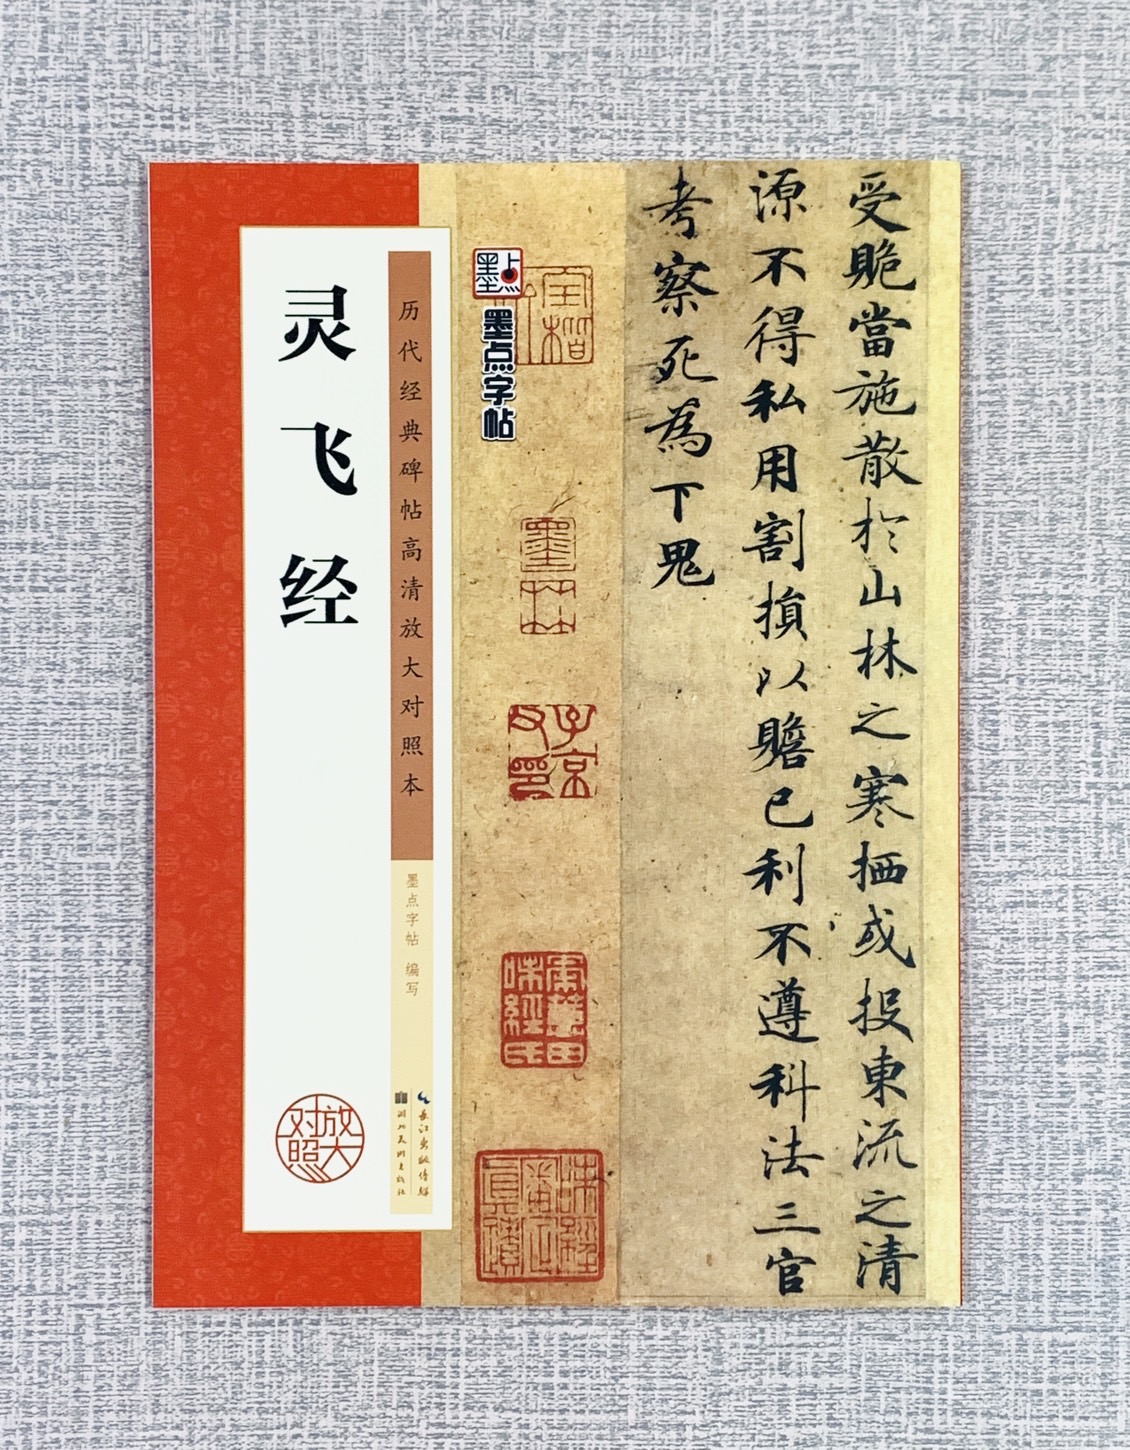 受賄當施散於山林之寒栖或投東流之清
源不得私用割損以贍己利不遵科法三官
考察死為下鬼
墨点
墨点字帖
子京
灵飞经
历代经典碑帖高清放大对照本
墨点字帖 编写
长江出版传媒
湖北美术出版社
放大对照